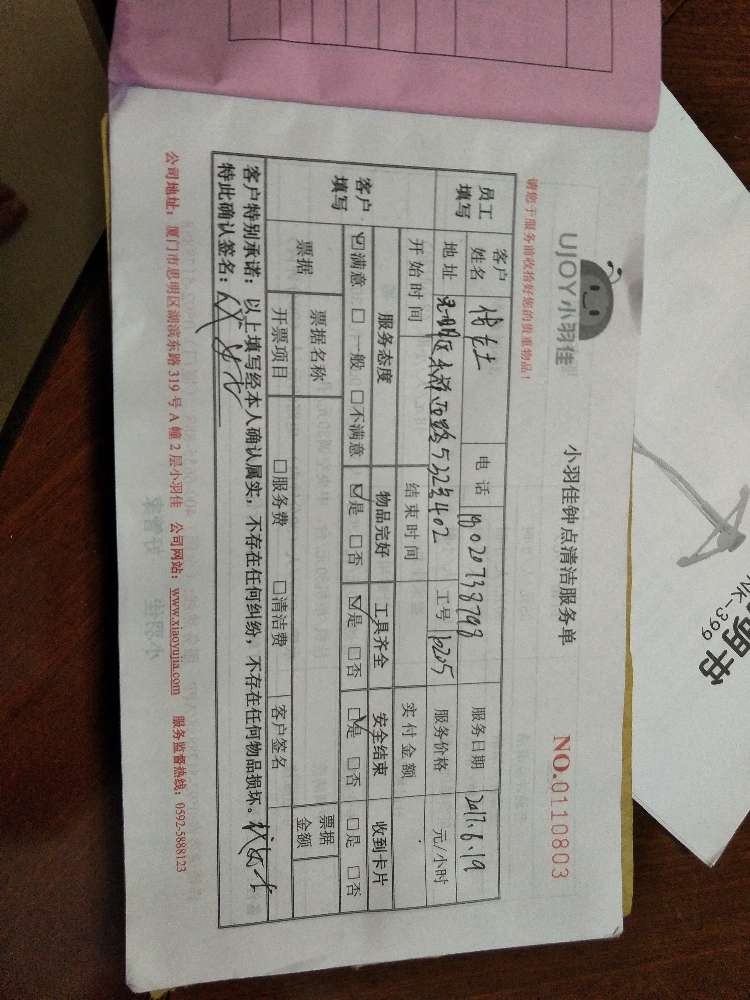 UJOY小羽佳
小羽佳钟点清洁服务单
NO.0110803
请您于服务前收拾好您的贵重物品！
员工填写 客户姓名 电话 服务日期 2017.6.19
地址 工号 1205 服务价格 元/小时
开始时间 结束时间 实付金额
客户填写 服务态度 物品完好 工具齐全 安全结束 收到卡片
☑满意 □一般 □不满意 ☑是 □否 ☑是 □否 ☑是 □否 □是 □否
票据 票据名称 票据金额
开票项目 □服务费 □清洁费 客户签名
客户特别承诺：以上填写经本人确认属实，不存在任何纠纷，不存在任何物品损坏。
特此确认签名：
公司地址：厦门市思明区湖滨东路 319 号 A 幢 2 层小羽佳 公司网站：www.xiaoyujia.com 服务监督热线：0592-5888123
明书